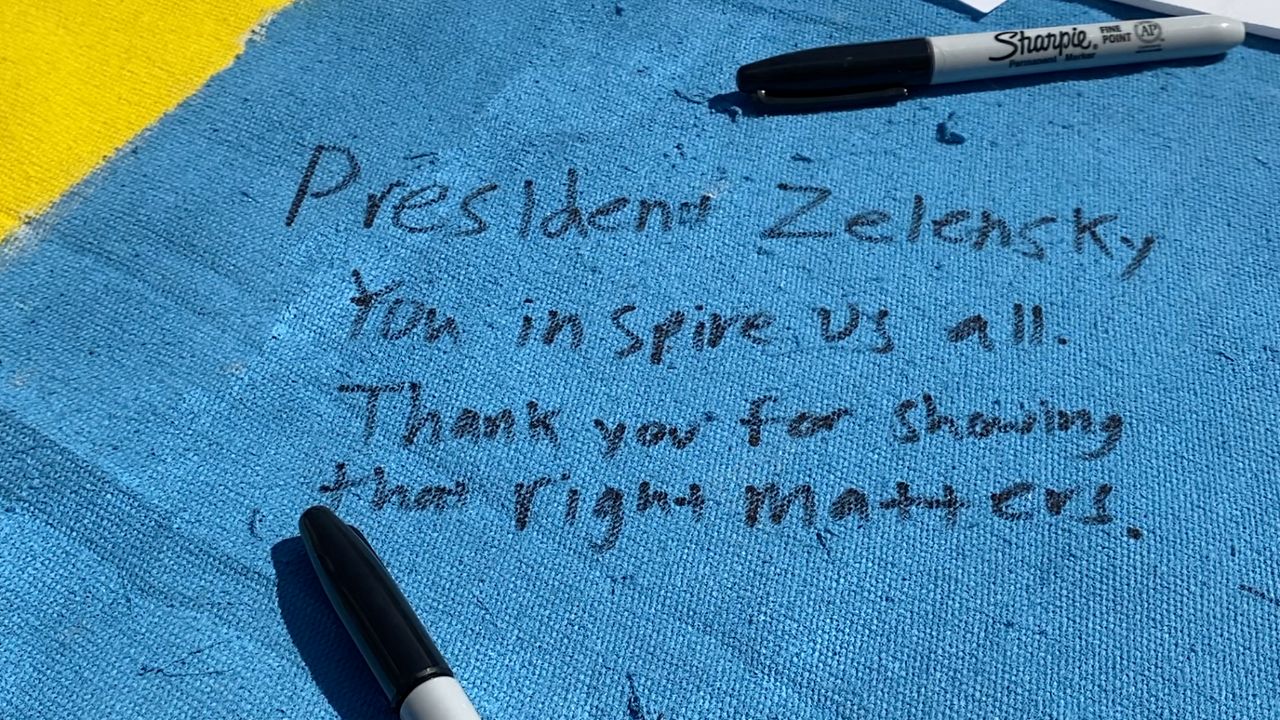 Sharpie® FINE POINT AP
Permanent Marker
President Zelensky
You inspire us all.
Thank you for showing
that right matters.